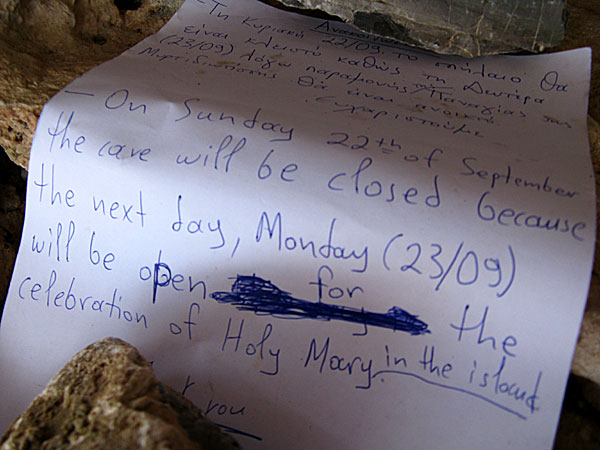 Ανακοίνωση
-Τη Κυριακή 22/09 το σπήλαιο θα
είναι κλειστό καθώς τη Δευτέρα
(23/09) λόγω παραμονής Παναγίας της
Μυρτιδιώτισσης θα είναι ανοικτό
Ευχαριστούμε
- On Sunday 22th of September
the cave will be closed because
the next day, Monday (23/09)
will be open for the
celebration of Holy Mary in the island
you